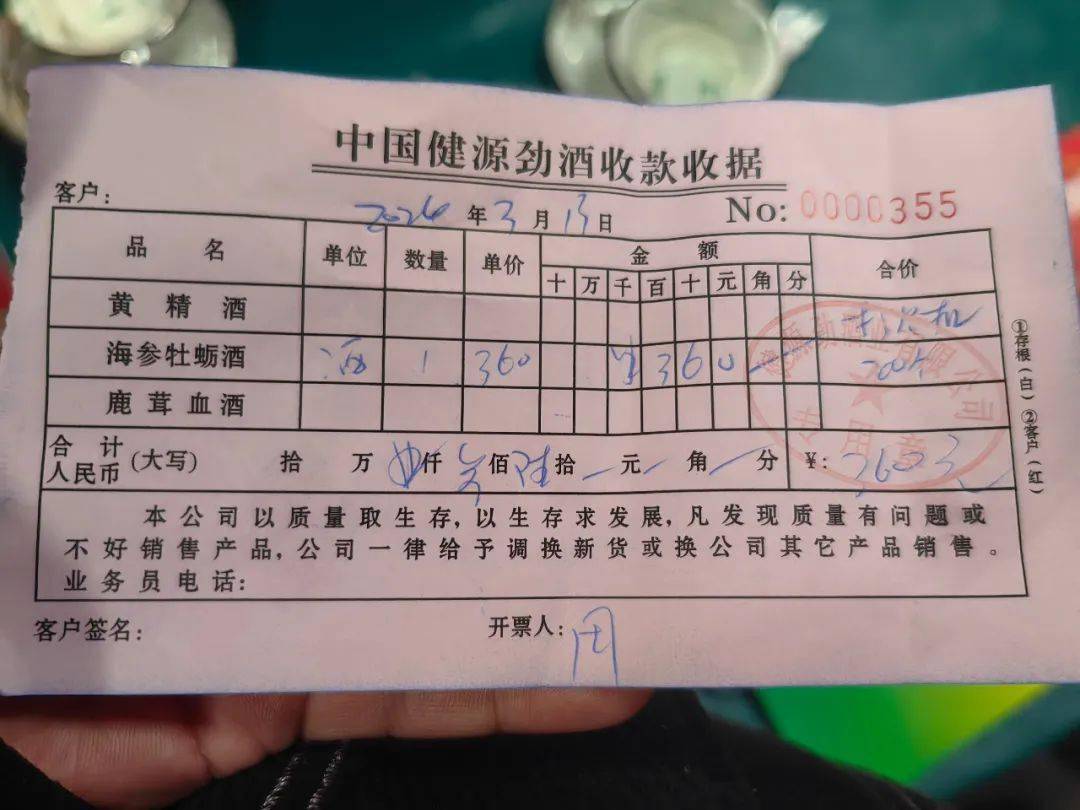 中国健源劲酒收款收据
客户：
2024年3月13日 No: 0000355
品名 单位 数量 单价 金额 合价
十 万 千 百 十 元 角 分
黄精酒
海参牡蛎酒 1 360 360
鹿茸血酒
合计人民币(大写) 拾 万 仟 佰 陆拾 元 角 分 ¥: 360元
本公司以质量取生存，以生存求发展，凡发现质量有问题或
不好销售产品，公司一律给予调换新货或换公司其它产品销售。
业务员电话：
客户签名： 开票人：周
①存根(白) ②客户(红)
源劲酒业有限公司
专用章